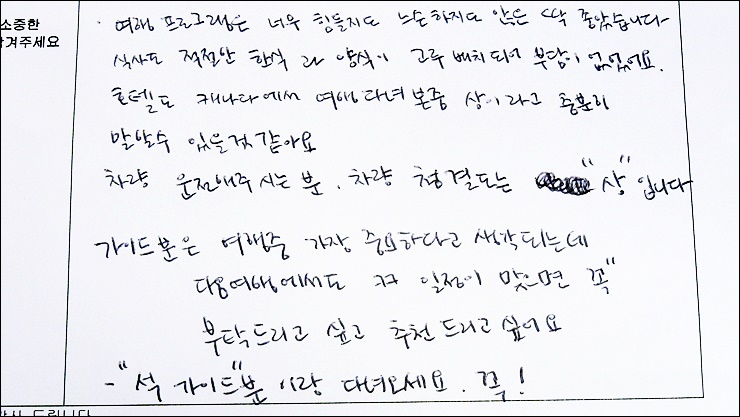 소중한
겨주세요
· 여행 프로그램은 너무 힘들지도 느슨하지도 않은 딱 좋았습니다
식사도 적절한 한식 과 양식이 고루 배치되어 부담이 없었어요.
호텔도 캐나다에서 여행다녀본중 상이라고 충분히
말할수 있을것 같아요
차량 운전해주시는 분. 차량 청결도는 "상" 입니다
가이드분은 여행중 가장 중요하다고 생각되는데
다음여행에서도 꼭 일정이 맞으면 꼭"
부탁드리고 싶고 추천드리고 싶어요
- "석 가이드"분 이랑 다녀오세요. 꼭!
드립니다